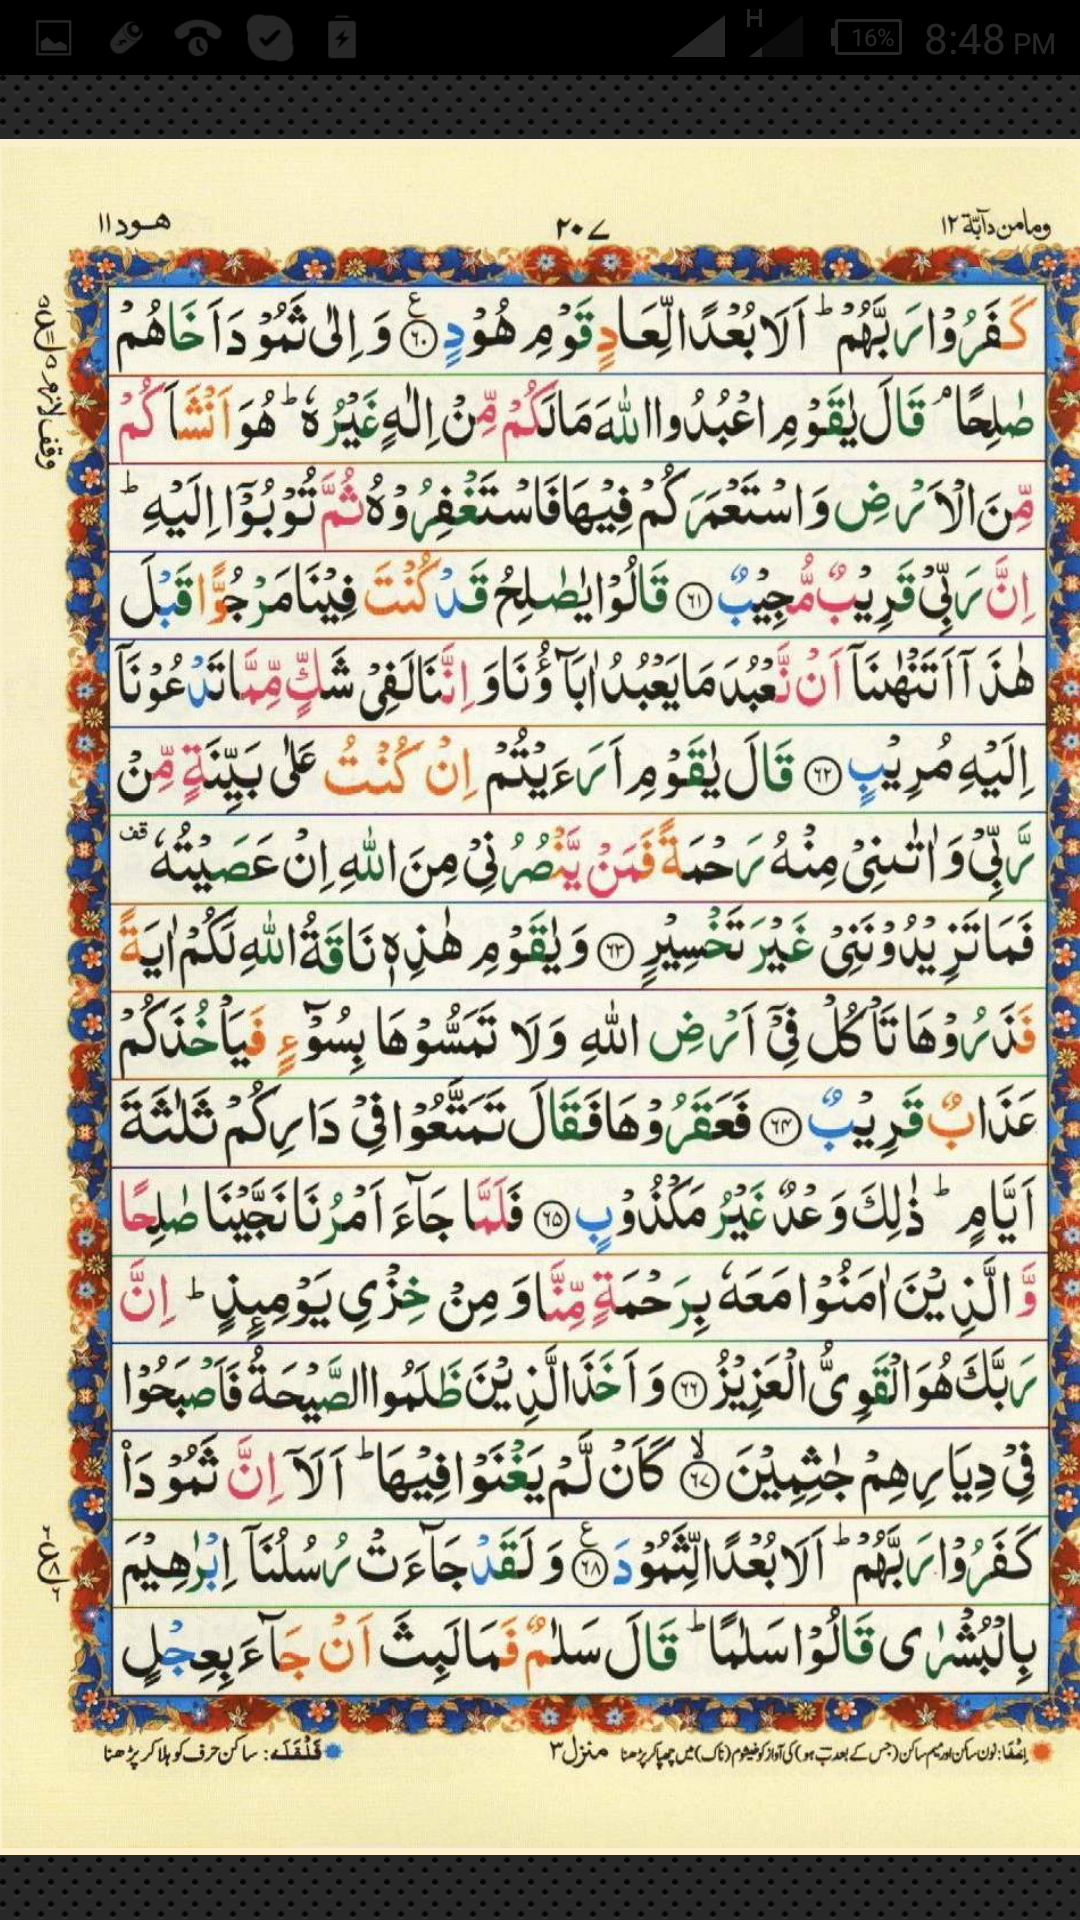 H
16%
8:48 PM
ومامن دآبّة ١٢
٢٠٧
هود ١١
كَفَرُوْا رَبَّهُمْ ؕ اَلَا بُعْدًا لِّعَادٍ قَوْمِ هُوْدٍ ۟ع ﴿۶۰﴾ وَ اِلٰى ثَمُوْدَ اَخَاهُمْ
صٰلِحًا ۘ قَالَ يٰقَوْمِ اعْبُدُوا اللّٰهَ مَا لَكُمْ مِّنْ اِلٰهٍ غَيْرُهٗ ؕ هُوَ اَنْشَاَكُمْ
مِّنَ الْاَرْضِ وَ اسْتَعْمَرَكُمْ فِيْهَا فَاسْتَغْفِرُوْهُ ثُمَّ تُوْبُوْۤا اِلَيْهِ ؕ
اِنَّ رَبِّيْ قَرِيْبٌ مُّجِيْبٌ ﴿۶۱﴾ قَالُوْا يٰصٰلِحُ قَدْ كُنْتَ فِيْنَا مَرْجُوًّا قَبْلَ
هٰذَاۤ اَتَنْهٰىنَاۤ اَنْ نَّعْبُدَ مَا يَعْبُدُ اٰبَآؤُنَا وَ اِنَّنَا لَفِيْ شَكٍّ مِّمَّا تَدْعُوْنَاۤ
اِلَيْهِ مُرِيْبٍ ﴿۶۲﴾ قَالَ يٰقَوْمِ اَرَءَيْتُمْ اِنْ كُنْتُ عَلٰى بَيِّنَةٍ مِّنْ
رَّبِّيْ وَ اٰتٰىنِيْ مِنْهُ رَحْمَةً فَمَنْ يَّنْصُرُنِيْ مِنَ اللّٰهِ اِنْ عَصَيْتُهٗ قف
فَمَا تَزِيْدُوْنَنِيْ غَيْرَ تَخْسِيْرٍ ﴿۶۳﴾ وَ يٰقَوْمِ هٰذِهٖ نَاقَةُ اللّٰهِ لَكُمْ اٰيَةً
فَذَرُوْهَا تَاْكُلْ فِيْۤ اَرْضِ اللّٰهِ وَلَا تَمَسُّوْهَا بِسُوْٓءٍ فَيَاْخُذَكُمْ
عَذَابٌ قَرِيْبٌ ﴿۶۴﴾ فَعَقَرُوْهَا فَقَالَ تَمَتَّعُوْا فِيْ دَارِكُمْ ثَلٰثَةَ
اَيَّامٍ ؕ ذٰلِكَ وَعْدٌ غَيْرُ مَكْذُوْبٍ ﴿۶۵﴾ فَلَمَّا جَآءَ اَمْرُنَا نَجَّيْنَا صٰلِحًا
وَّ الَّذِيْنَ اٰمَنُوْا مَعَهٗ بِرَحْمَةٍ مِّنَّا وَ مِنْ خِزْيِ يَوْمِئِذٍ ؕ اِنَّ
رَبَّكَ هُوَ الْقَوِيُّ الْعَزِيْزُ ﴿۶۶﴾ وَ اَخَذَ الَّذِيْنَ ظَلَمُوا الصَّيْحَةُ فَاَصْبَحُوْا
فِيْ دِيَارِهِمْ جٰثِمِيْنَ ۙ ﴿۶۷﴾ كَاَنْ لَّمْ يَغْنَوْا فِيْهَا ؕ اَلَاۤ اِنَّ ثَمُوْدَا۟
كَفَرُوْا رَبَّهُمْ ؕ اَلَا بُعْدًا لِّثَمُوْدَ ۟ع ﴿۶۸﴾ وَ لَقَدْ جَآءَتْ رُسُلُنَاۤ اِبْرٰهِيْمَ
بِالْبُشْرٰى قَالُوْا سَلٰمًا ؕ قَالَ سَلٰمٌ فَمَا لَبِثَ اَنْ جَآءَ بِعِجْلٍ
وقف لازم
اِخفَا: نون ساکن اور میم ساکن (جس کے بعد ب ہو) کی آواز کو خیشوم (ناک) میں چھپا کر پڑھنا
منزل ٣
قَلْقَلَه: ساکن حرف کو ہلا کر پڑھنا